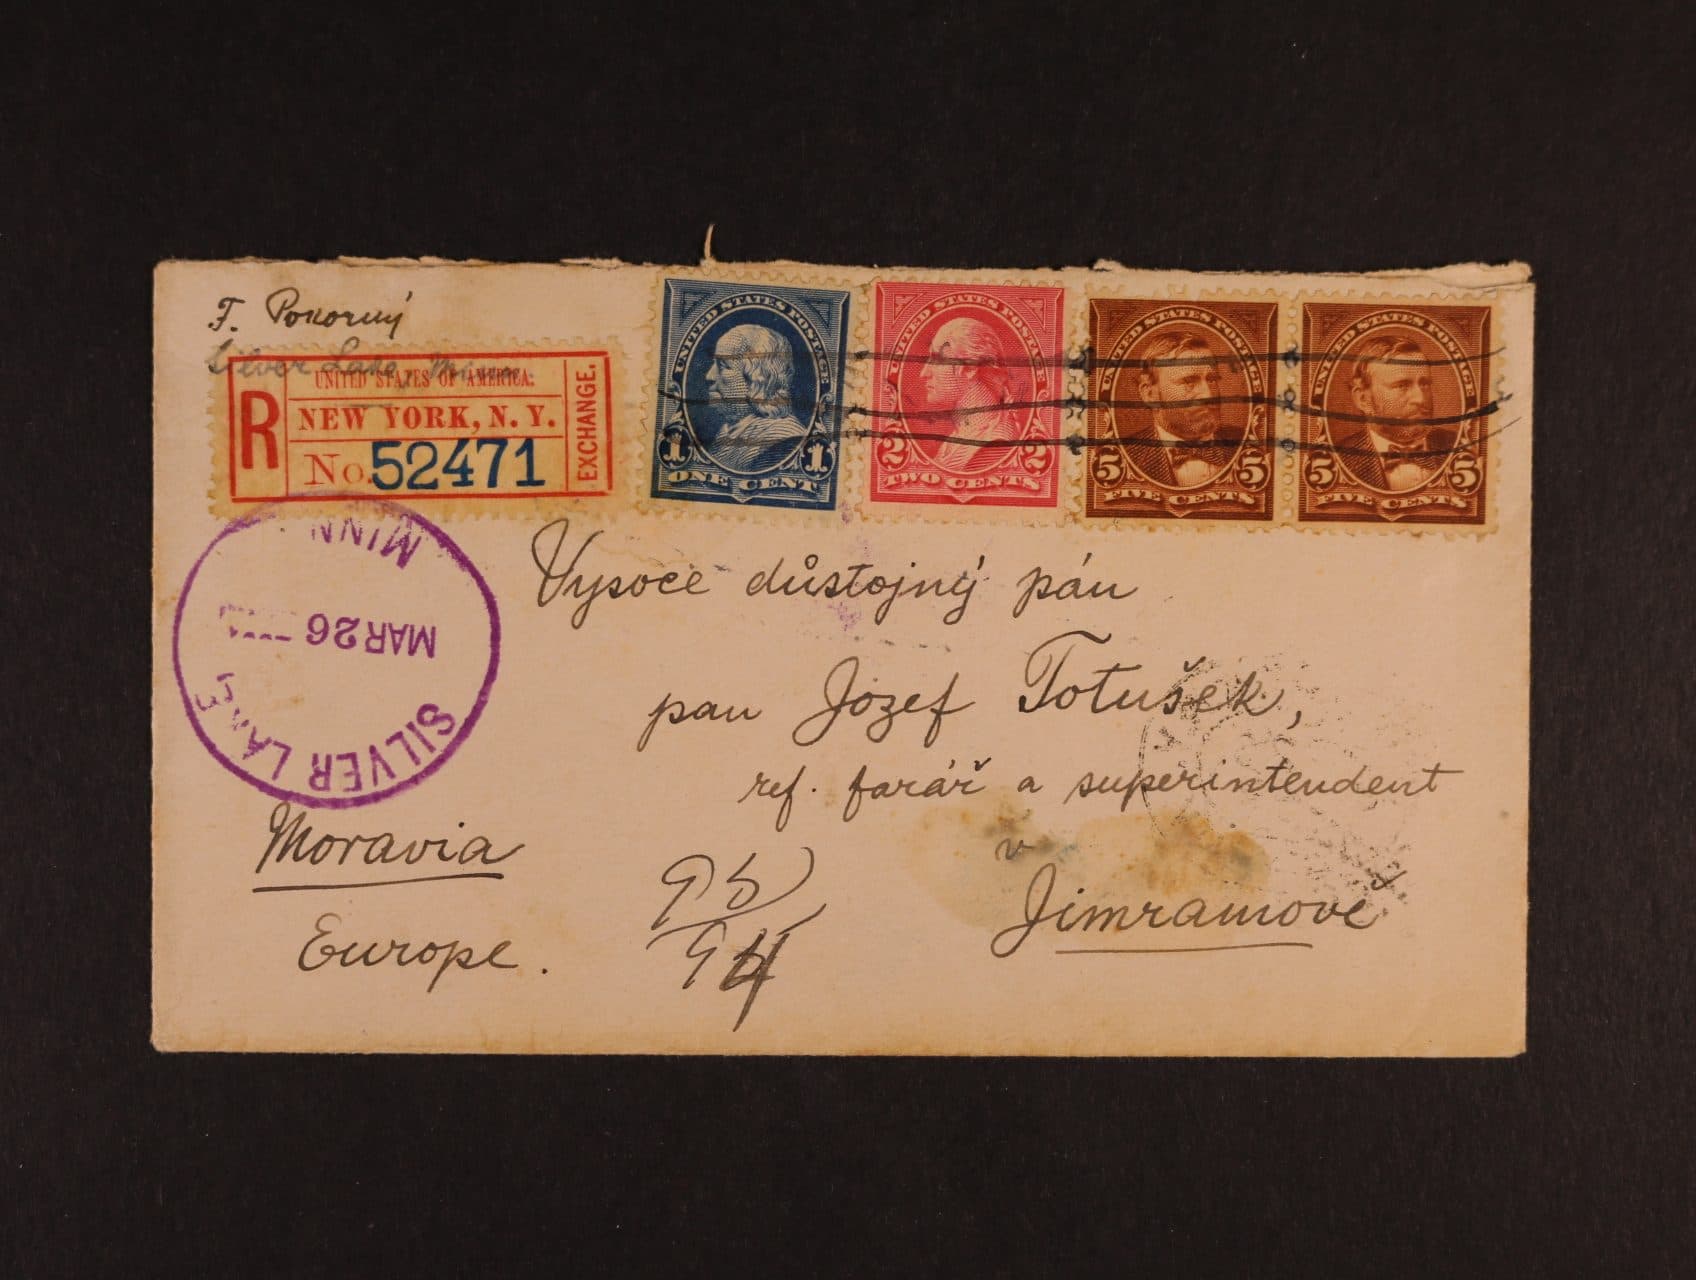 F. Pokorný
Silver Lake, Minn.
UNITED STATES OF AMERICA.
R
NEW YORK, N. Y.
No. 52471
EXCHANGE.
UNITED STATES POSTAGE
1 1
ONE CENT
UNITED STATES POSTAGE
2 2
TWO CENTS
UNITED STATES POSTAGE
5 5
FIVE CENTS
UNITED STATES POSTAGE
5 5
FIVE CENTS
SILVER LAKE
MAR 26
MINN
Vysoce důstojný pán
pan Jozef Totušek,
ref. farář a superintendent
v
Jimramově
Moravia
Europe.